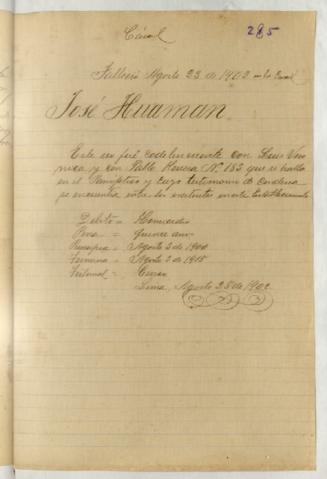 Cárcel
285
Falleció Agosto 23 de 1902 en la Carcel
José Huaman.
Este reo fué codelincuente con Luis
y con Pablo Herrera Nº 183 que se halla
en el Panóptico y cuyo testimonio de condena
se encuentra entre los
Delito = Homicidio
Pena = Quince años
Principia = Agosto 3 de 1900
Termina = Agosto 3 de 1915
Tribunal = Cuzco
Lima, Agosto 28 de 1902